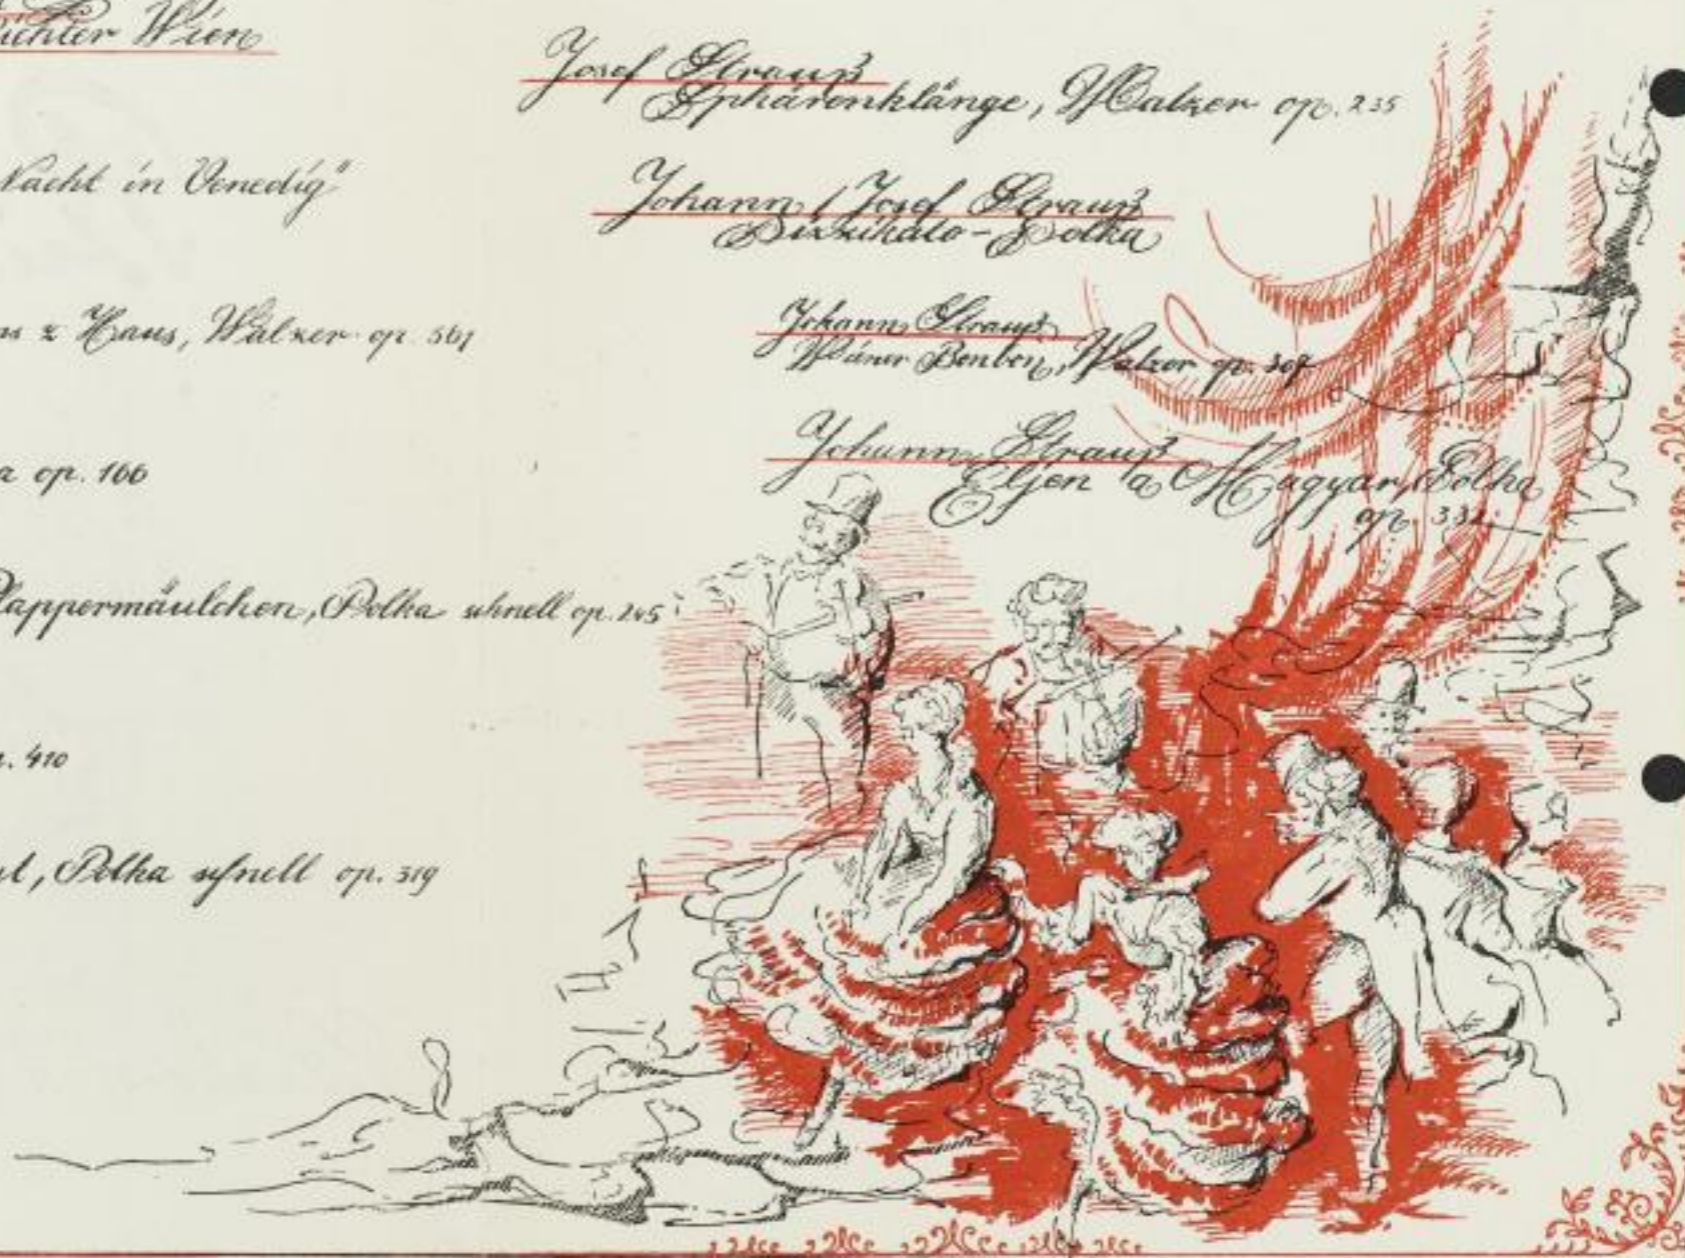 Wien
Nacht in Venedig"
z Haus, Walzer op. 561
op. 166
Plappermäulchen, Polka schnell op. 245
op. 410
Polka schnell op. 319
Josef Strauß
Sphärenklänge, Walzer op. 235
Johann / Josef Strauß
Pizzikato-Polka
Johann Strauß
Wiener Bonbon, Walzer op. 307
Johann Strauß
Eljen a Magyar, Polka
op. 332